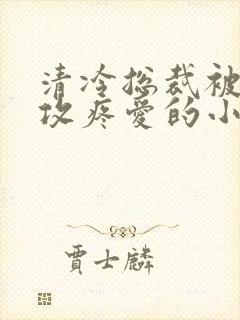 清冷总裁被
攻疼爱的小
贾士麟